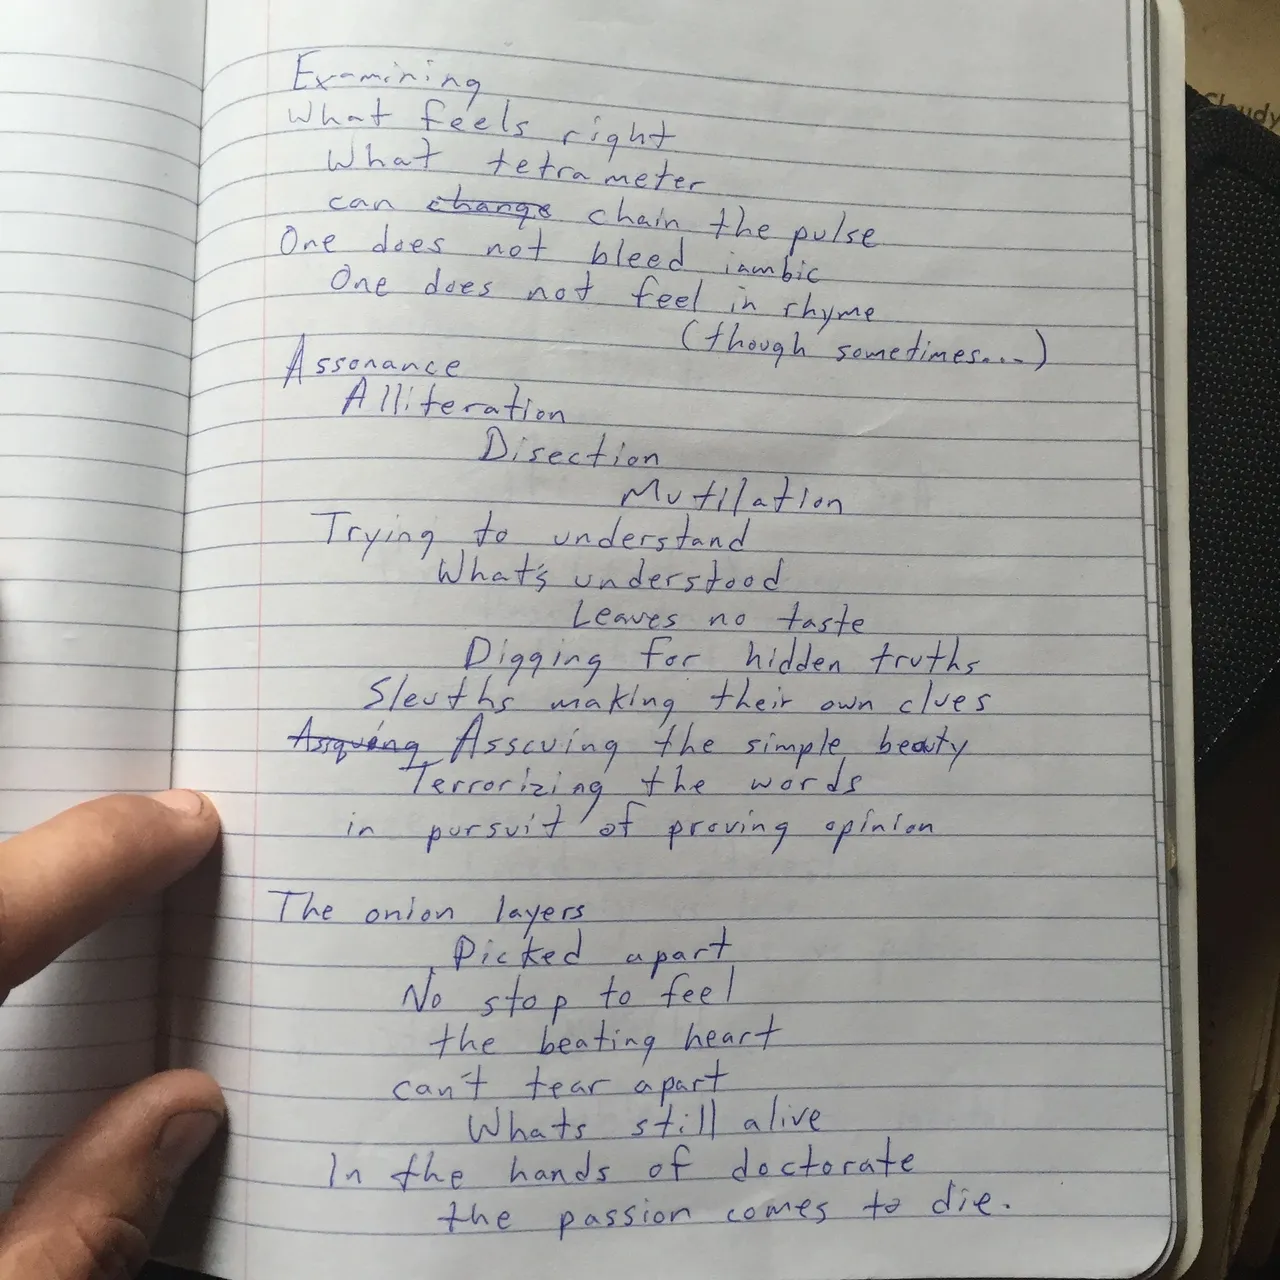 Examining
What feels right
What tetrameter
can change chain the pulse
One does not bleed iambic
One does not feel in rhyme
(though sometimes....)
Assonance
Alliteration
Disection
Mutilation
Trying to understand
What's understood
Leaves no taste
Digging for hidden truths
Sleuths making their own clues
Assquing Asscuing the simple beauty
Terrorizing the words
in pursuit of proving opinion
The onion layers
Picked apart
No stop to feel
the beating heart
can't tear apart
Whats still alive
In the hands of doctorate
the passion comes to die.
Cloudy